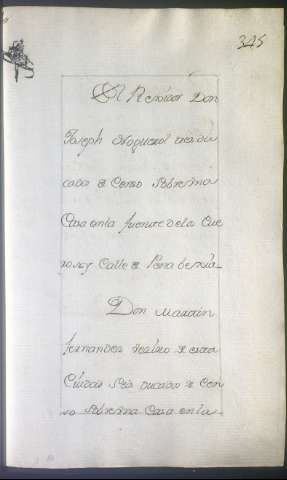 345
El Relixor Don
Joseph Noguerol
cada de Censo Sobre una
Casa en la fuente de la Cue
ro, y Calle de
Don Martin
fernandez vezino de esta
Ciudad Seis ducados de Cen
so Sobre una Casa en la